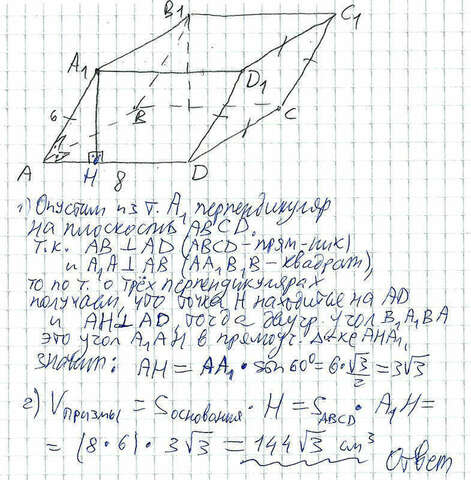 B1
C1
A1
D1
6
B
C
A
H
8
D
1) Опустим из т. A1 перпендикуляр
на плоскость ABCD.
Т.к. AB ⊥ AD (ABCD - прям-ник)
и A1A ⊥ AB (AA1B1B - квадрат),
то по т. о трёх перпендикулярах
получаем, что точка H находится на AD
и AH ⊥ AD, тогда двугр. угол
это угол A1AH в прямоуг. Δ-ке AHA1,
значит: AH = AA1 · sin 60° = 6 · √3/2 = 3√3
2) Vпризмы = Sоснования · H = SABCD · A1H =
= (8 · 6) · 3√3 = 144√3 см³ Ответ